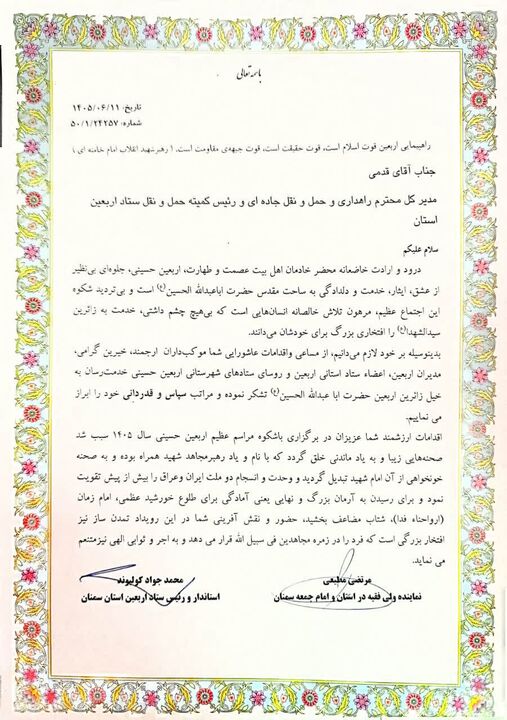 باسمه تعالی
تاریخ: ۱۴۰۵/۰۶/۱۱
شماره: ۵۰/۱/۲۴۲۵۷
راهپیمایی اربعین قوت اسلام است، قوت حقیقت است، قوت جبهه‌ی مقاومت است. ( رهبرشهید انقلاب امام خامنه ای )
جناب آقای قدمی
مدیر کل محترم راهداری و حمل و نقل جاده ای و رئیس کمیته حمل و نقل ستاد اربعین
استان
سلام علیکم
درود و ارادت خاضعانه محضر خادمان اهل بیت عصمت و طهارت، اربعین حسینی، جلوه‌ای بی‌نظیر
از عشق، ایثار، خدمت و دلدادگی به ساحت مقدس حضرت اباعبدالله الحسین(ع) است و بی‌تردید شکوه
این اجتماع عظیم، مرهون تلاش خالصانه انسان‌هایی است که بی‌هیچ چشم داشتی، خدمت به زائرین
سیدالشهدا(ع) را افتخاری بزرگ برای خودشان می‌دانند.
بدینوسیله بر خود لازم می‌دانیم، از مساعی واقدامات عاشورایی شما موکب‌داران ارجمند، خیرین گرامی،
مدیران اربعین، اعضاء ستاد استانی اربعین و روسای ستادهای شهرستانی اربعین حسینی خدمت‌رسان به
خیل زائرین اربعین حضرت ابا عبدالله الحسین(ع) تشکر نموده و مراتب سپاس و قدردانی خود را ابراز
می نماییم.
اقدامات ارزشمند شما عزیزان در برگزاری باشکوه مراسم عظیم اربعین حسینی سال ۱۴۰۵ سبب شد
صحنه‌هایی زیبا و به یاد ماندنی خلق گردد که با نام و یاد رهبرمجاهد شهید همراه بوده و به صحنه
خونخواهی از آن امام شهید تبدیل گردید و وحدت و انسجام دو ملت ایران وعراق را بیش از پیش تقویت
نمود و برای رسیدن به آرمان بزرگ و نهایی یعنی آمادگی برای طلوع خورشید عظمی، امام زمان
(ارواحناء فدا)، شتاب مضاعف بخشید، حضور و نقش آفرینی شما در این رویداد تمدن ساز نیز
افتخار بزرگی است که فرد را در زمره مجاهدین فی سبیل الله قرار می دهد و به اجر و ثوابی الهی نیزمتنعم
می نماید.
مرتضی مطیعی
نماینده ولی فقیه در استان و امام جمعه سمنان
محمد جواد کولیوند
استاندار و رئیس ستاد اربعین استان سمنان